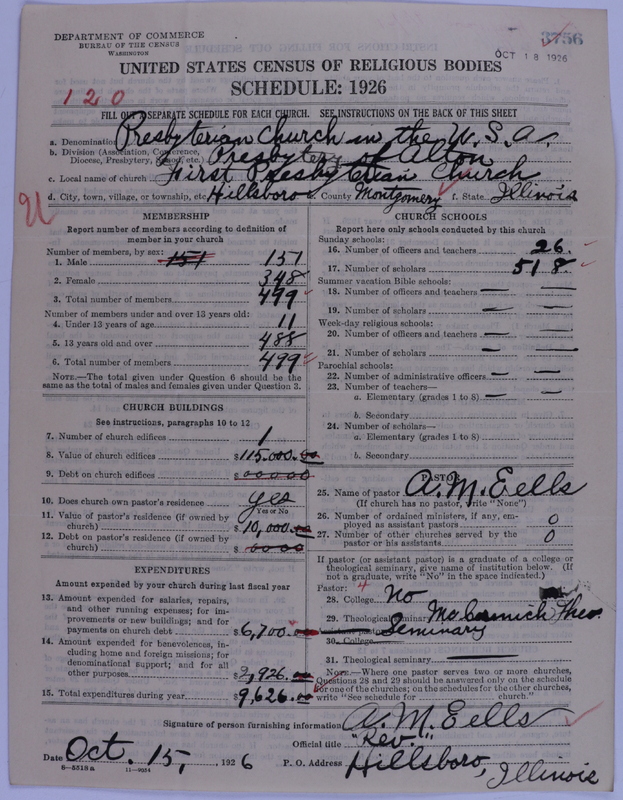 DEPARTMENT OF COMMERCE
BUREAU OF THE CENSUS
WASHINGTON
3756
OCT 18 1926
UNITED STATES CENSUS OF RELIGIOUS BODIES
SCHEDULE: 1926
120
FILL OUT SEPARATE SCHEDULE FOR EACH CHURCH. SEE INSTRUCTIONS ON THE BACK OF THIS SHEET
a. Denomination Presbyterian Church in the U.S.A.
b. Division (Association, Conference, Diocese, Presbytery, Synod, etc.) Presbytery of Alton
c. Local name of church First Presbyterian Church
d. City, town, village, or township, etc. Hillsboro e. County Montgomery f. State Illinois
MEMBERSHIP
Report number of members according to definition of
member in your church
Number of members, by sex:
1. Male 151 151
2. Female 348
3. Total number of members 499
Number of members under and over 13 years old:
4. Under 13 years of age 11
5. 13 years old and over 488
6. Total number of members 499
NOTE.—The total given under Question 6 should be the
same as the total of males and females given under Question 3.
CHURCH BUILDINGS
See instructions, paragraphs 10 to 12
7. Number of church edifices 1
8. Value of church edifices $115,000.00
9. Debt on church edifices $00000
10. Does church own pastor's residence yes
Yes or No
11. Value of pastor's residence (if owned by
church) $10,000.00
12. Debt on pastor's residence (if owned by
church) $0000
EXPENDITURES
Amount expended by your church during last fiscal year
13. Amount expended for salaries, repairs,
and other running expenses; for im-
provements or new buildings; and for
payments on church debt $6,700.00
14. Amount expended for benevolences, in-
cluding home and foreign missions; for
denominational support; and for all
other purposes $2,926.00
15. Total expenditures during year $9,626.00
CHURCH SCHOOLS
Report here only schools conducted by this church
Sunday schools:
16. Number of officers and teachers 26
17. Number of scholars 518
Summer vacation Bible schools:
18. Number of officers and teachers — —
19. Number of scholars — —
Week-day religious schools:
20. Number of officers and teachers — —
21. Number of scholars — —
Parochial schools:
22. Number of administrative officers — —
23. Number of teachers—
a. Elementary (grades 1 to 8) — —
b. Secondary
24. Number of scholars—
a. Elementary (grades 1 to 8)
b. Secondary
PASTOR
25. Name of pastor A. M. Eells
(If church has no pastor, write "None")
26. Number of ordained ministers, if any, em-
ployed as assistant pastors 0
27. Number of other churches served by the
pastor or his assistants 0
If pastor (or assistant pastor) is a graduate of a college or
theological seminary, give name of institution below. (If
not a graduate, write "No" in the space indicated.)
Pastor: 4
28. College No
29. Theological seminary McCormick Theo. Seminary
30. College
31. Theological seminary
NOTE.—Where one pastor serves two or more churches,
Questions 28 and 29 should be answered only on the schedule
for one of the churches; on the schedules for the other churches,
write "See schedule for church."
Signature of person furnishing information A. M. Eells
Official title "Rev."
Date Oct. 15, 1926 P. O. Address Hillsboro, Illinois
8—5518a 11—9034